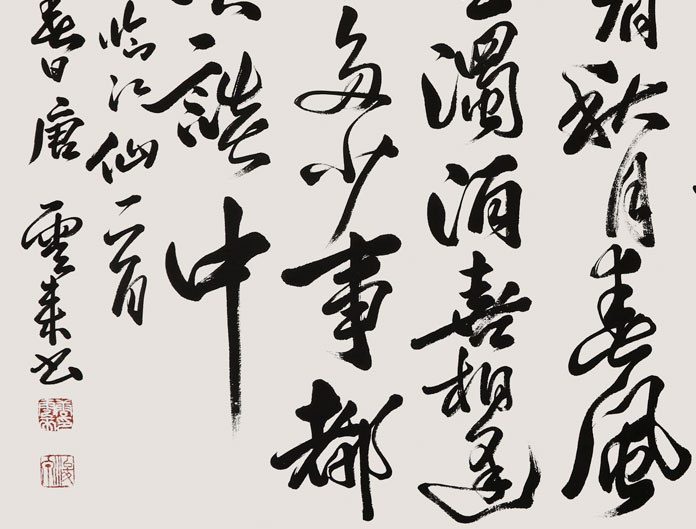 秋月春風
濁酒喜相逢
多少事都
談中
臨江仙
春日唐雲來書